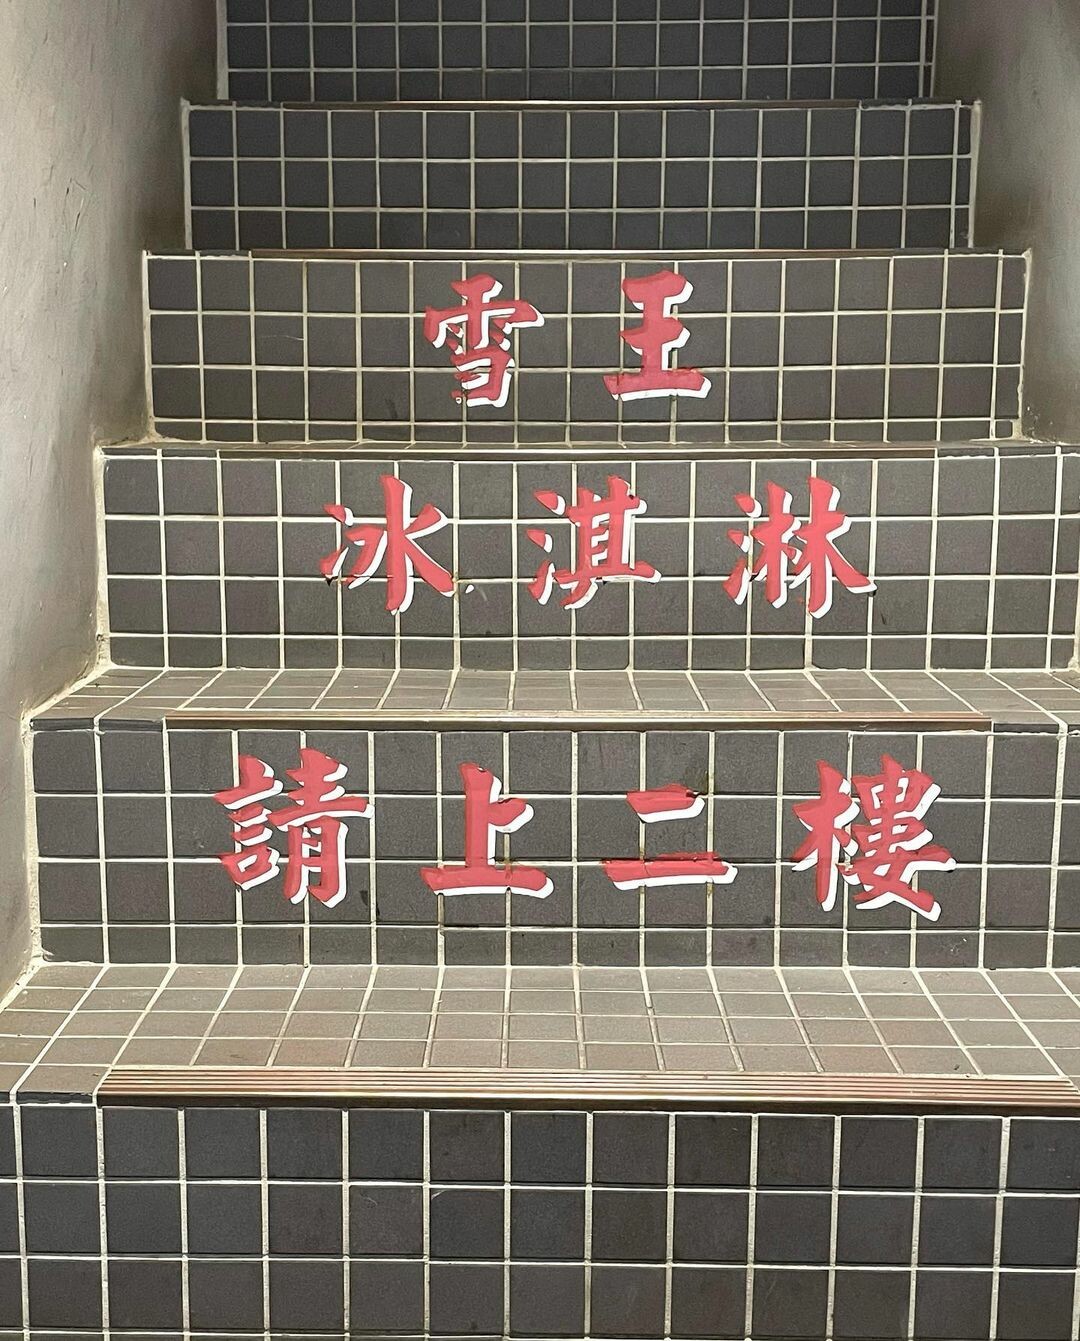 雪王
冰淇淋
請上二樓